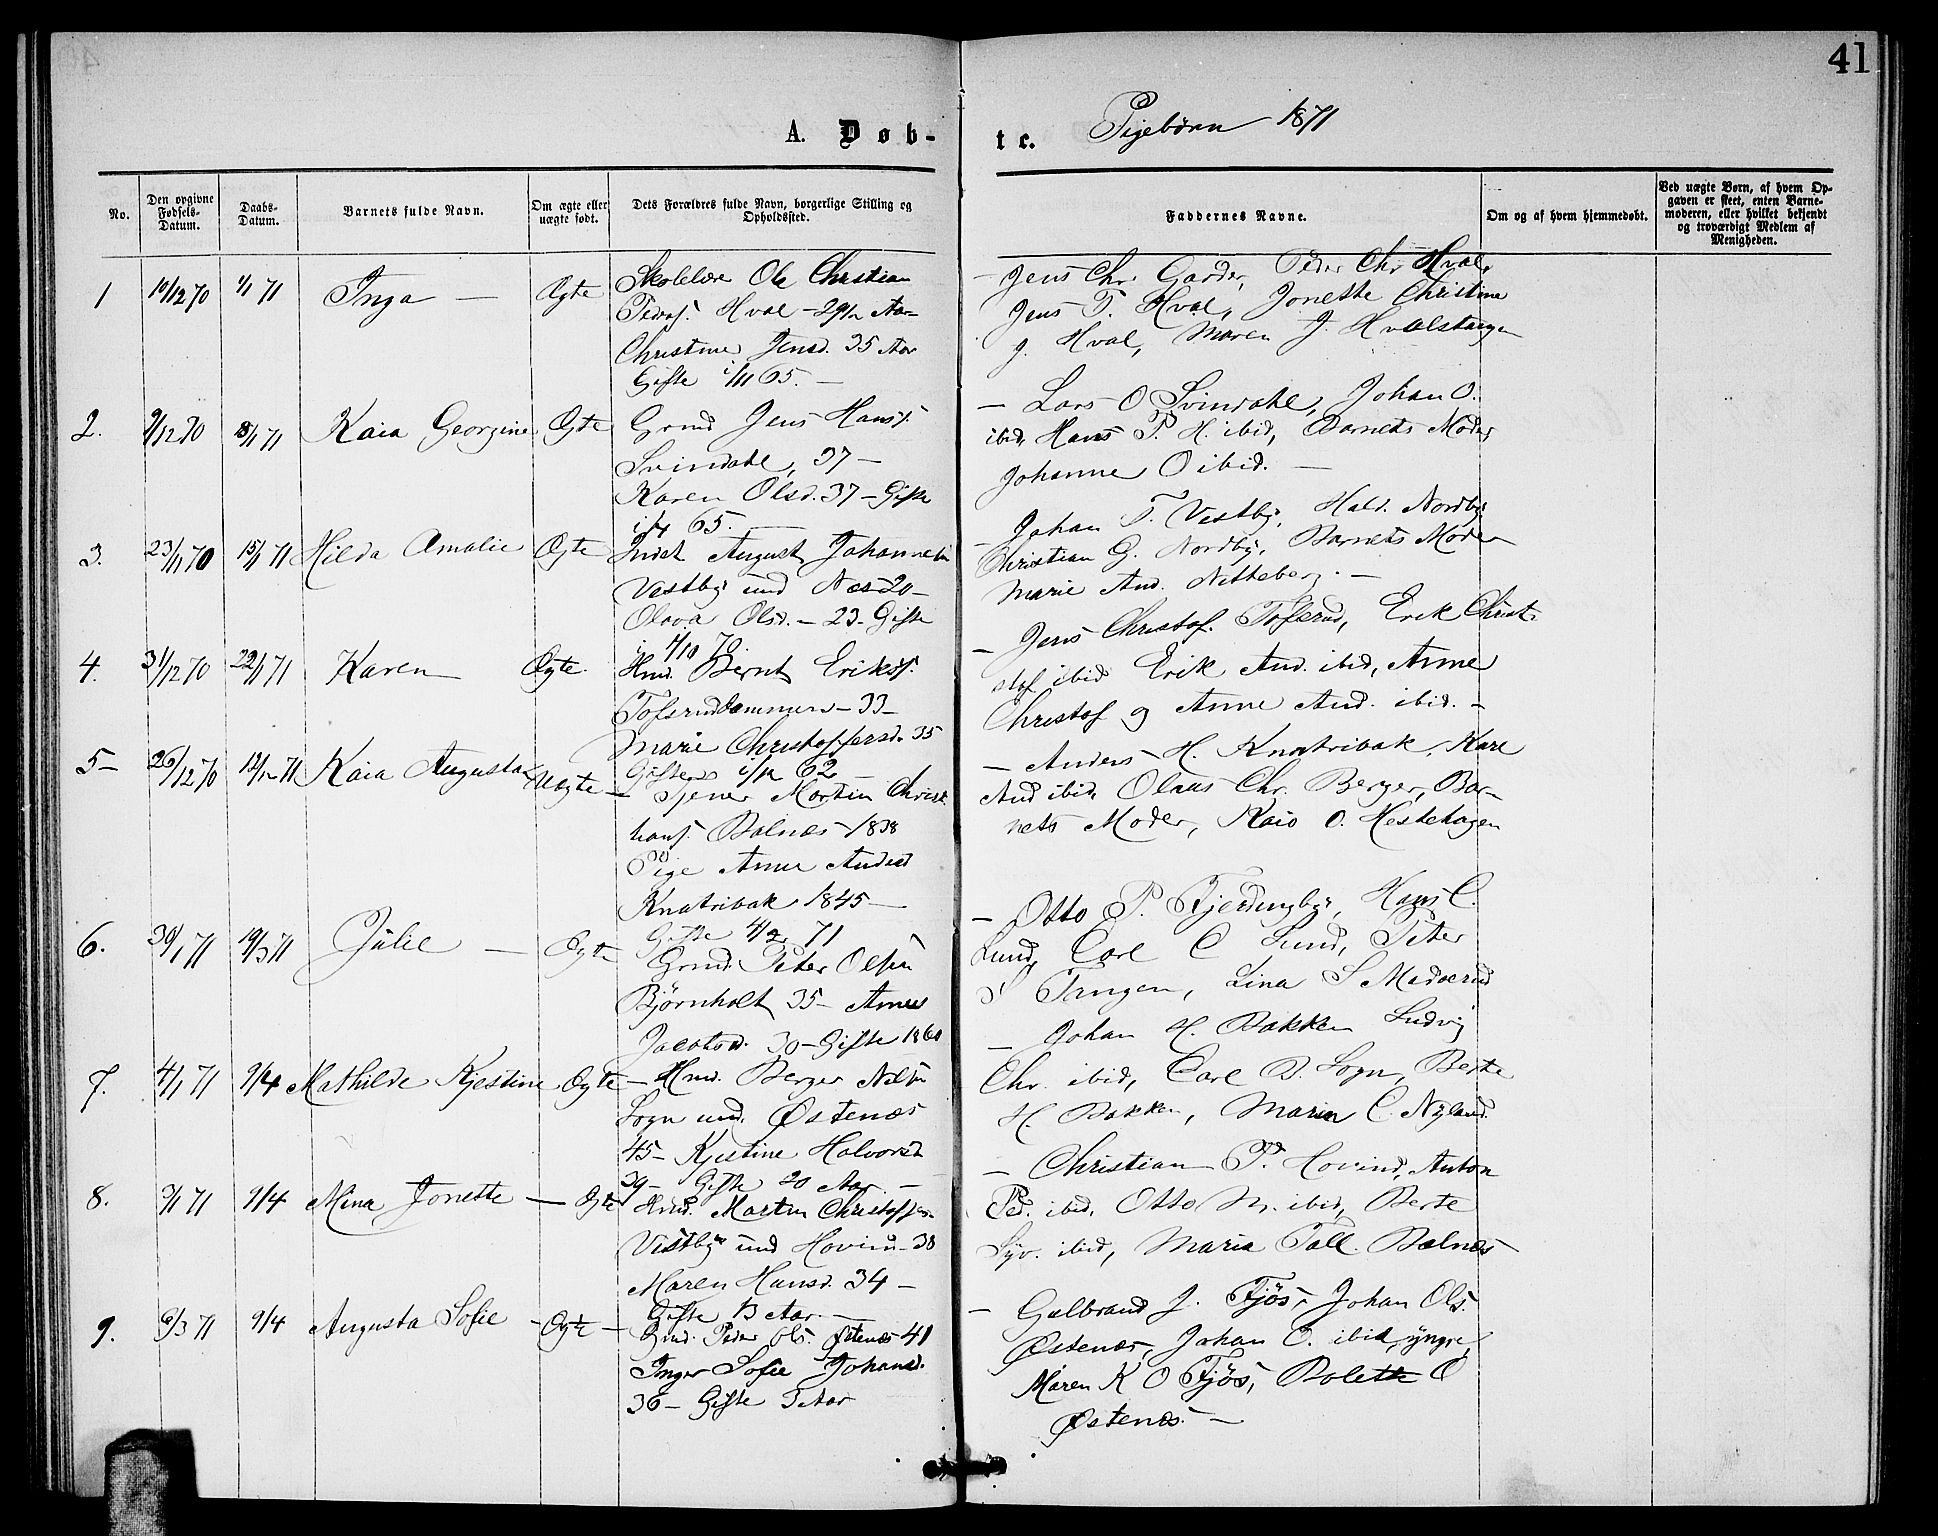 41
A. Døb-
te.
Pigebørn 1871
No.
Den opgivne Fødsels-Datum.
Daabs-Datum.
Barnets fulde Navn.
Om ægte eller uægte født.
Dets Forældres fulde Navn, borgerlige Stilling og Opholdssted.
Faddernes Navne.
Om og af hvem hjemmedøbt.
Ved uægte Børn, af hvem Opgaven er skeet, enten Barnemoderen, eller hvilket bekjendt og troværdigt Medlem af Menigheden.
1 10/12 70 1/1 71 Inga — Ægte
Skolelær Ole Christian
Peders. Hval - 29½ Aar
Christine Jensd. 35 Aar
Gifte i/11 65. —
— Jens Chr. Garder, Peder Chr Hval,
Jens P. Hval, Jonette Christine
J. Hval, Maren J. Hvalstangen
2. 9/12 70 8/1 71 Kaia Georgine Ægte
Grmd Jens Hans.
Svindahl, 37 —
Karen Olsd. 37 — Gifte
i/4 65. —
— Lars O Svindahl, Johan O.
ibid, Hans P. H. ibid, Barnets Moder
Johanne O ibid. —
3. 23/11 70 15/1 71 Hilda Amalie Ægte
Indst August Johannes
Vestby und Næs 20 —
Olava Olsd. — 23 - Gifte
i 1/10 70.
— Johan T. Vestby, Hald. Nordby
Christian G. Nordby, Barnets Moder
Marie And. Nitteberg. —
4. 31/12 70 22/1 71 Karen Ægte
Hmd. Bernt Eriks.
Tofsrud — 33 —
Marie Christoffersd. 35
Giftes i/12 62 —
— Jens Christof. Tofsrud, Erik Christ.
stof ibid Erik And. ibid, Anne
Christof og Anne And. ibid. —
5 — 26/12 70 12/1 71 Kaia Augusta Uægte —
Tjener Martin Christ
hans. Balnæs 1838
Pige Anne Andersd
Knatribak 1845 —
— Anders H. Knatribak, Kare
And ibid, Olaus Chr. Berger, Bar-
nets Moder, Kaia O. Hestehagen
6. 30/1 71 19/3 71 Julie — Ægte
Gifte 4/2 71
Grmd. Peter Olsen
Bjørnholt 35 — Anne
Jacobsd. 30 — Gifte 1860
— Otto P. Fjerdingby, Hans C.
Lund, Carl C Lund, Peter
S Tangen, Lina S
7. 4/1 71 9/4 Mathilde Kjestine Ægte
— Hmd. Berger Nilsen
Sogn und. Østenæs
45 — Kjestine Halvorsd
39 — Gifte 20 Aar. —
— Johan H. Bakken Ludvig
Chr. ibid, Carl B. Sogn, Berte
H. Bakken, Maria C. Nyland.
8. 3/1 71 9/4 Mina Jonette — Ægte
Hmd. Martin Christoffers.
Vestby und Hovind 38
Maren Hansd. 34 —
Gifte 13 Aar. —
— Christian P. Hovind, Anton
Ped. ibid, Otto M. ibid, Berte
Syv. ibid, Maria Toll. Balnæs
9. 6/3 71 9/4 Augusta Sofie — Ægte —
Grmd. Peder Ols. Østenæs 41
Inger Sofie Johansd.
36 — Gifte 3 Aar
— Gulbrand J. Fjøs, Johan Ols.
Østenæs, Johan O. ibid, yngre,
Maren K O Fjøs, Bolette O
Østenæs. —